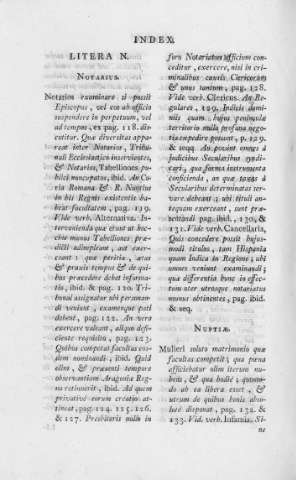 INDEX
LITERA N.
NOTARIUS.
Notarios examinare si possit
Episcopus, vel eos ab officio
suspendere in perpetuum, vel
ad tempus, ex pag. 118. dis-
cutitur. Quæ diversitas appa-
reat inter Notarios, Tribu-
nali Ecclesiastico inservientes,
& Notarios, Tabelliones pu-
bilci nuncupatos, ibid. An Cu-
ria Romana & R. Nuntius
in bis Regnis existentis ba-
beat facultatem, pag. 119.
Vide verb. Alternativa. In-
terveniendo quæ erunt ad hoc-
cine munus Tabelliones præ-
dicti adimpleant, aut exer-
ceant: quæ peritia, ætas
& praxis tempus & de qui-
bus præcedere debet informa-
tio, ibid. & pag. 120. Tri-
bunal assignatur ubi peranan-
di venient, examenque pati
debent, pag. 122. An vero
exercere valeant, aliquo defi-
ciente requisito, pag. 123.
Quibus competat facultas eos-
dem nominandi, ibid. Quid
olim, & præsenti tempore
observantiam Aragoniæ Reg-
na retinuerit, ibid. Ad quem
privativè eorum creatio at-
tineat, pag. 124. 125. 126.
& 127. Presbiteris nulio in
foro Notariatus officium con-
ceditur, exercere, nisi in cri-
minalibus causis Clericorum
& unus tantum, pag. 128.
Vide verb. Clericus. An Re-
gulares, 129. Indicis domi-
niis quam hujus peninsula
territorio nulla profana nego-
tia expedire possunt, p. 129.
& seqq. An possint emqs à
Judicibus Secularibus syndi-
cari, qua forma instrumenta
conficienda, an quæ stegs à
Secularibus determinatas ser-
vare debeant; ubi tituli an-
tequam exerceant, sunt præ-
sentandi pag. ibid. 130, &
131. Vide verb. Cancellaria,
Quis concedere possit hujus-
modi titulos, tam Hispania
quam Indica in Regione; ubi
unus veniunt examinandi;
qua differentia hunc in effec-
tum inter utrosque notariatus
munus obtinentes, pag. ibid.
& seq.
NUPTIÆ.
Mulieri soluto matrimonio quæ
facultas competit; qua pœna
afficiebatur olim iterum nu-
bens, & qua hodie; quomo-
do ab ea libera exeat, &
utrum de quibus bonis abso-
lutè disponat, pag. 132. &
133. Vid. verb. Infamia. Si-
ne